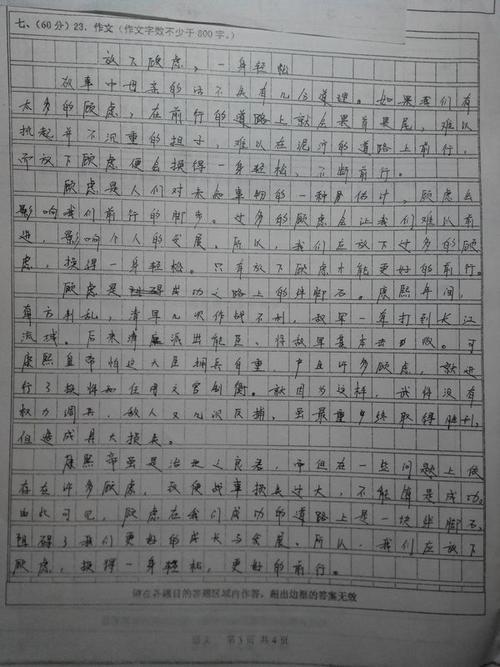 七、(60分) 23. 作文（作文字数不少于800字。）
放下顾虑，一身轻松
故事中母亲的话不无有几分道理。如果我们有
太多的顾虑，在前行的道路上就会畏首畏尾，难以
执起并不沉重的担子，难以在泥泞的道路上前行，
而放下顾虑便会换得一身轻松，不断前行。
顾虑是人们对未知事物的一种估计，顾虑会
影响我们前行的脚步。过多的顾虑会让我们难以前
进，影响个人的发展。所以，我们应放下过多的顾
虑，换得一身轻松。只有放下顾虑才能更好的前行。
顾虑是成功之路上的绊脚石。康熙年间，
方判乱，清军几次作战不利，敌军一举打到长江
流域。后来清派出能臣，将敌军击败。可
康熙皇帝怕这大臣拥兵自重，产生许多顾虑，就进
行了换将和任用文官制衡。就因为这样，武将没有
权力调兵，敌人又几次反捕，虽最终取得胜利，
但造成具大损失。
康熙帝虽是治世之良君，而但在一些问题上依
存在许多顾虑，致使战事损失过大，不能算是成功。
由此可见，顾虑在我们成功的道路上是一块绊脚石，
阻碍了我们更好的成长与发展。所以，我们应放下
顾虑，换得一身轻松，更好的前行。
请在各题目的答题区域内作答，超出边框的答案无效
语文 第3页 共4页